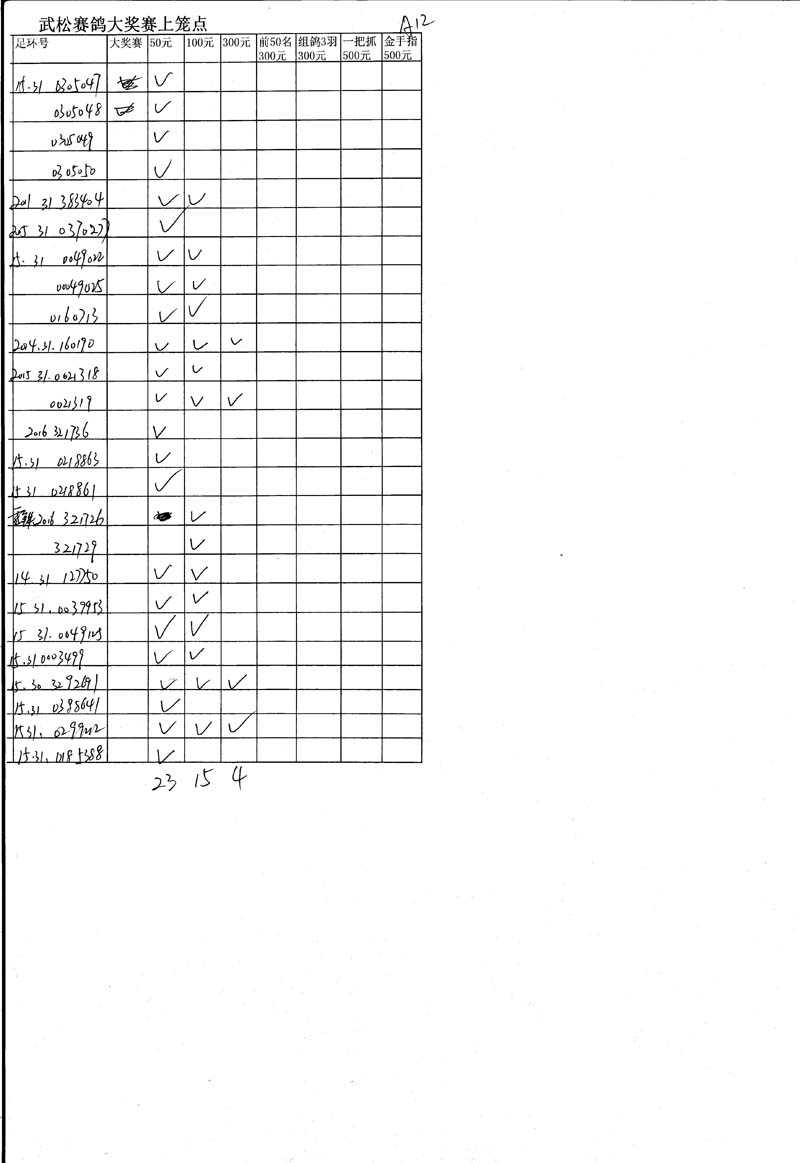 武松赛鸽大奖赛上笼点 A12
足环号 大奖赛 50元 100元 300元 前50名300元 组鸽3羽300元 一把抓500元 金手指500元
15.31 0305047 ✓
0305048 ✓
0305049 ✓
0305050 ✓
2011 31 383404 ✓ ✓
2015 31 0370277 ✓
15.31 0049022 ✓ ✓
00049025 ✓ ✓
0160713 ✓ ✓
2014.31.160190 ✓ ✓ ✓
2015 31.0021318 ✓ ✓
0021319 ✓ ✓ ✓
2016 321736 ✓
15.31 0218863 ✓
15 31 0218861 ✓
2016 321726 ✓
321729 ✓
14.31 127750 ✓ ✓
15 31.0039953 ✓ ✓
15 31.0049125 ✓ ✓
15.31 0003499 ✓ ✓
15.30 3292691 ✓ ✓ ✓
15.31 0388641 ✓
1531. 0299202 ✓ ✓ ✓
15.31.0185388 ✓
23 15 4